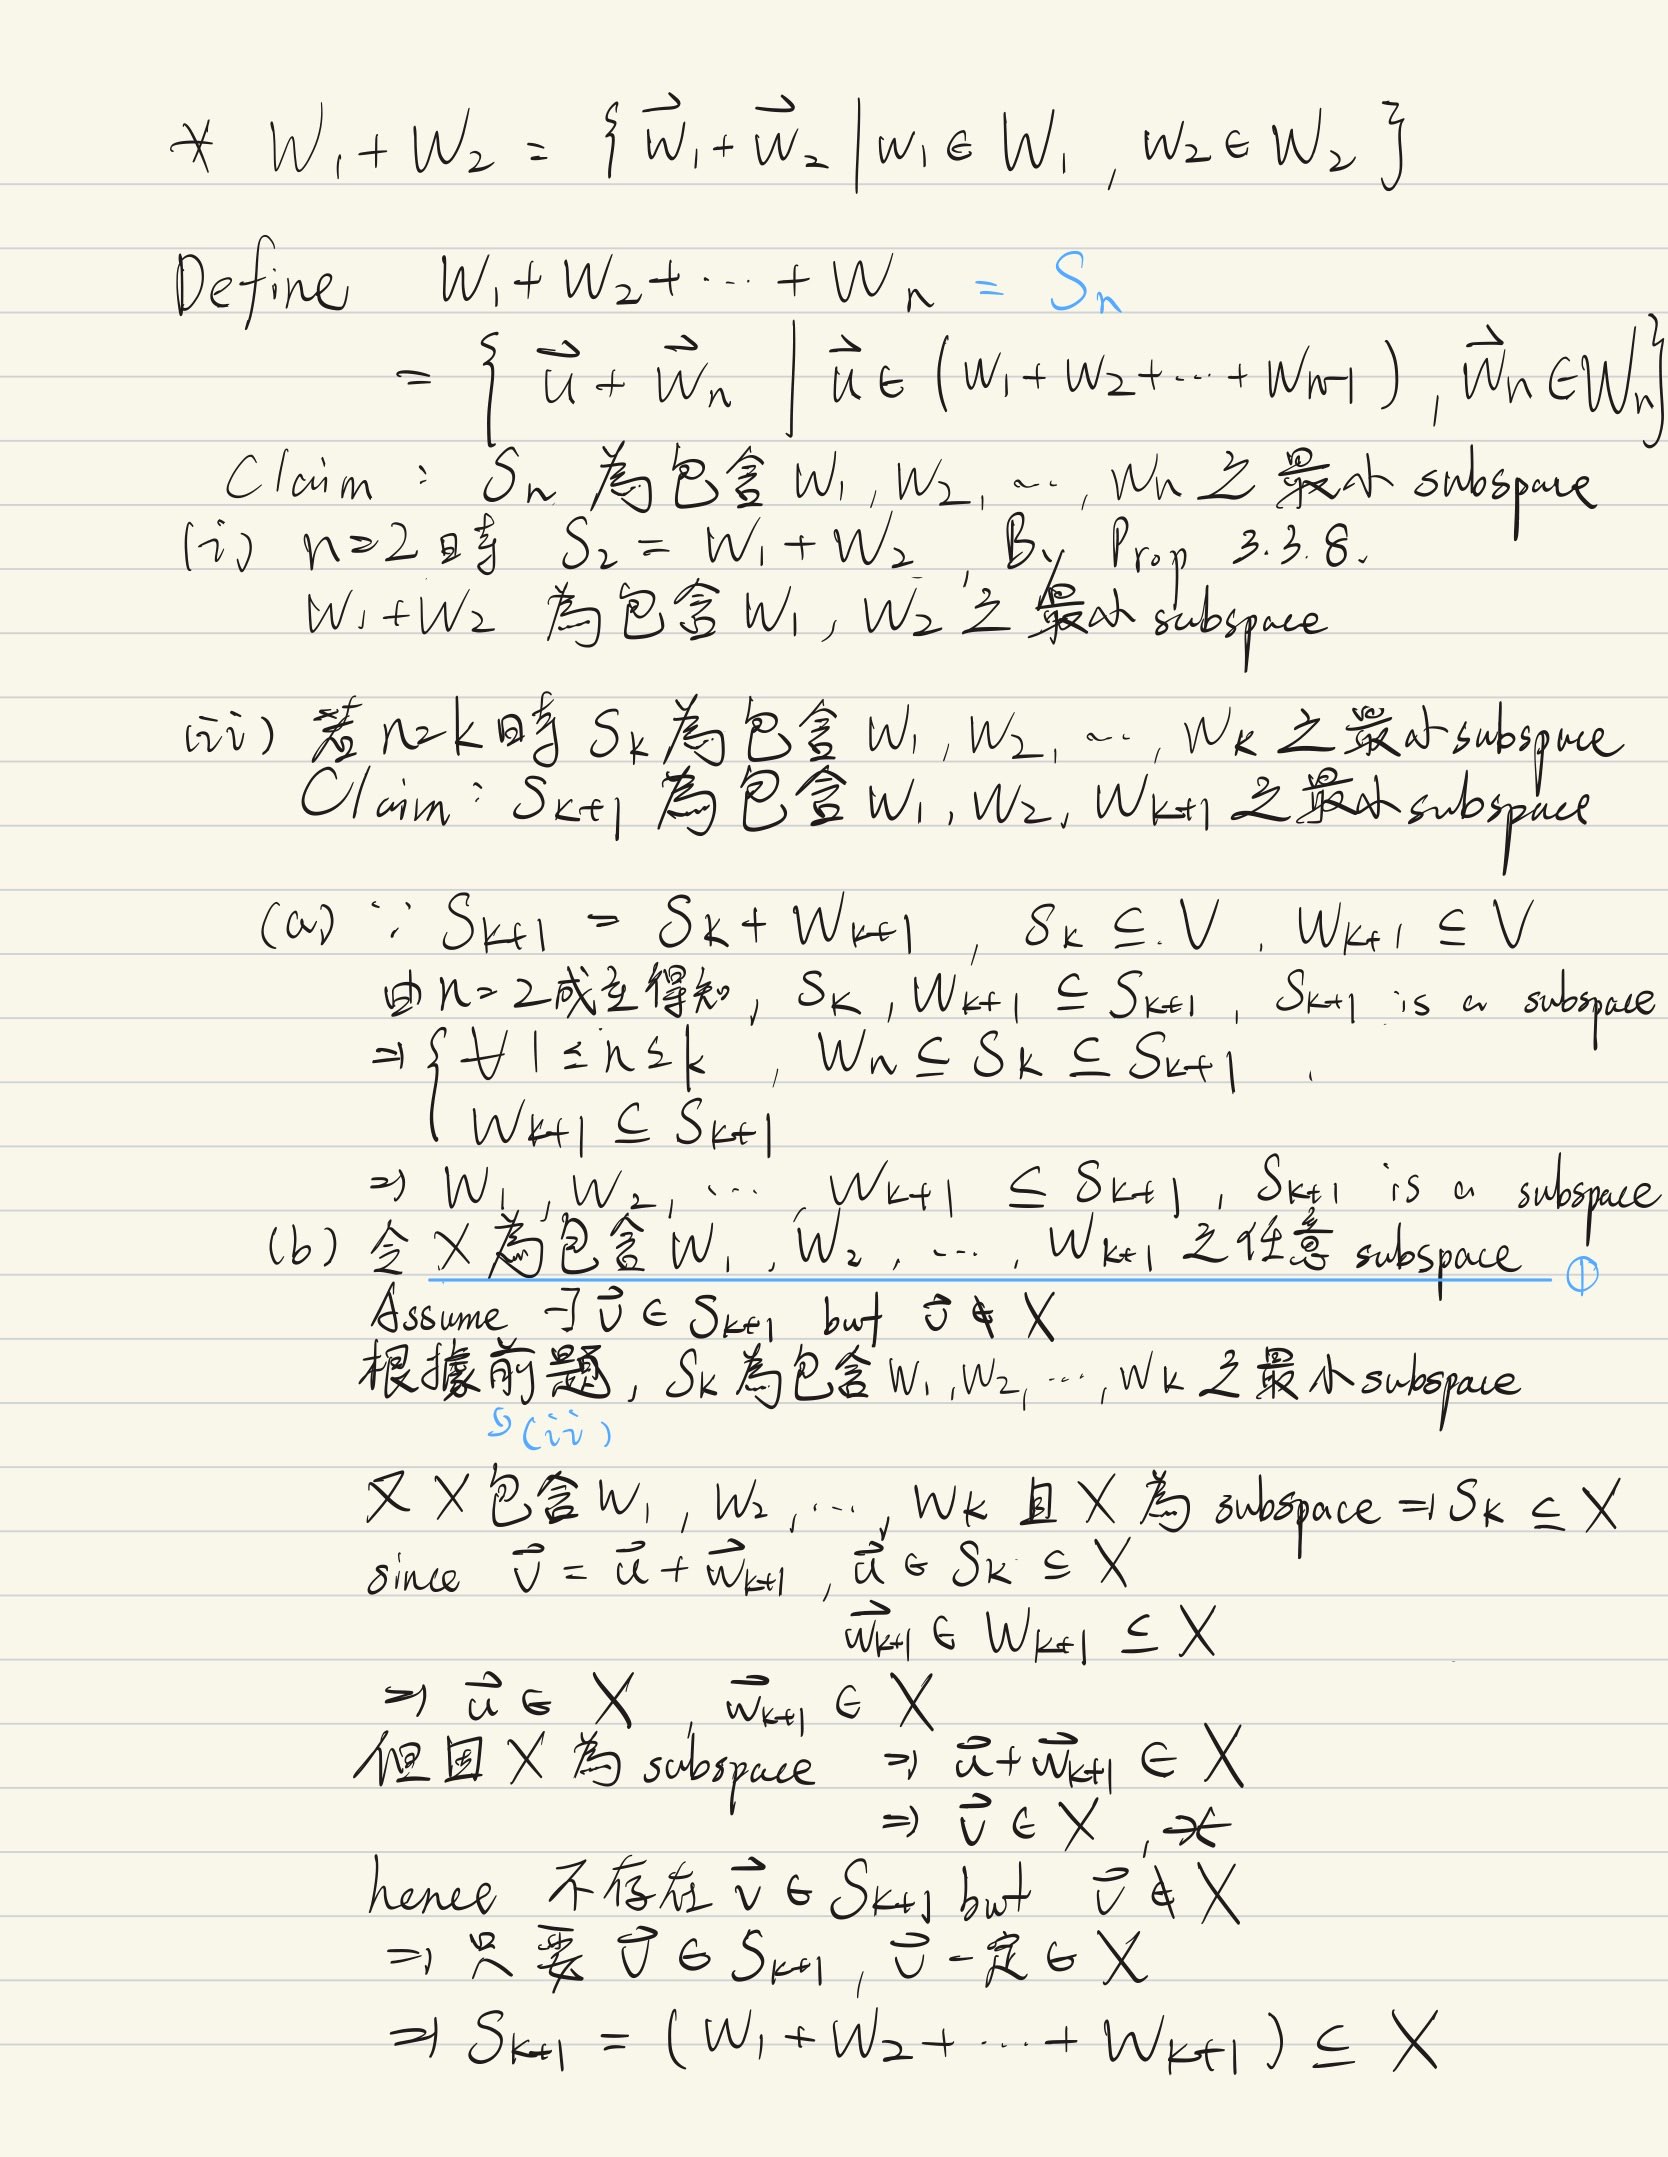 * W₁ + W₂ = { w⃗₁ + w⃗₂ | w₁ ∈ W₁ , w₂ ∈ W₂ }
Define W₁ + W₂ + ⋯ + Wₙ = Sₙ
= { u⃗ + w⃗ₙ | u⃗ ∈ ( W₁ + W₂ + ⋯ + Wₙ₋₁ ) , w⃗ₙ ∈ Wₙ }
Claim : Sₙ 為包含 W₁ , W₂ , ⋯ , Wₙ 之最小 subspace
(i) n=2 時 S₂ = W₁ + W₂ , By Prop 3.3.8.
W₁ + W₂ 為包含 W₁ , W₂ 之最小 subspace
(ii) 若 n=k 時 Sₖ 為包含 W₁ , W₂ , ⋯ , Wₖ 之最小 subspace
Claim : Sₖ₊₁ 為包含 W₁ , W₂ , Wₖ₊₁ 之最小 subspace
(a) ∵ Sₖ₊₁ = Sₖ + Wₖ₊₁ , Sₖ ⊆ V , Wₖ₊₁ ⊆ V
由 n=2 成立得知 , Sₖ , Wₖ₊₁ ⊆ Sₖ₊₁ , Sₖ₊₁ is a subspace
⇒ { ∀ 1 ≤ n ≤ k , Wₙ ⊆ Sₖ ⊆ Sₖ₊₁
Wₖ₊₁ ⊆ Sₖ₊₁
⇒ W₁ , W₂ , ⋯ , Wₖ₊₁ ⊆ Sₖ₊₁ , Sₖ₊₁ is a subspace
(b) 令 X 為包含 W₁ , W₂ , ⋯ , Wₖ₊₁ 之任意 subspace ①
Assume ∃ v⃗ ∈ Sₖ₊₁ but v⃗ ∉ X
根據前題 , Sₖ 為包含 W₁ , W₂ , ⋯ , Wₖ 之最小 subspace
(ii)
又 X 包含 W₁ , W₂ , ⋯ , Wₖ 且 X 為 subspace ⇒ Sₖ ⊆ X
since v⃗ = u⃗ + w⃗ₖ₊₁ , u⃗ ∈ Sₖ ⊆ X
w⃗ₖ₊₁ ∈ Wₖ₊₁ ⊆ X
⇒ u⃗ ∈ X , w⃗ₖ₊₁ ∈ X
但因 X 為 subspace ⇒ u⃗ + w⃗ₖ₊₁ ∈ X
⇒ v⃗ ∈ X , →←
hence 不存在 v⃗ ∈ Sₖ₊₁ but v⃗ ∉ X
⇒ 只要 v⃗ ∈ Sₖ₊₁ , v⃗ 一定 ∈ X
⇒ Sₖ₊₁ = ( W₁ + W₂ + ⋯ + Wₖ₊₁ ) ⊆ X